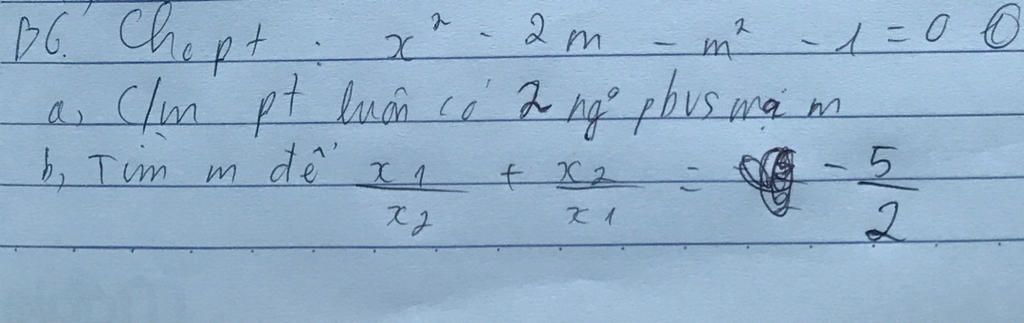 B6. Cho pt : x² - 2m - m² - 1 = 0 ①
a, C/m pt luôn có 2 ngº pb vs mọi m
b, Tìm m để x1/x2 + x2/x1 = -5/2